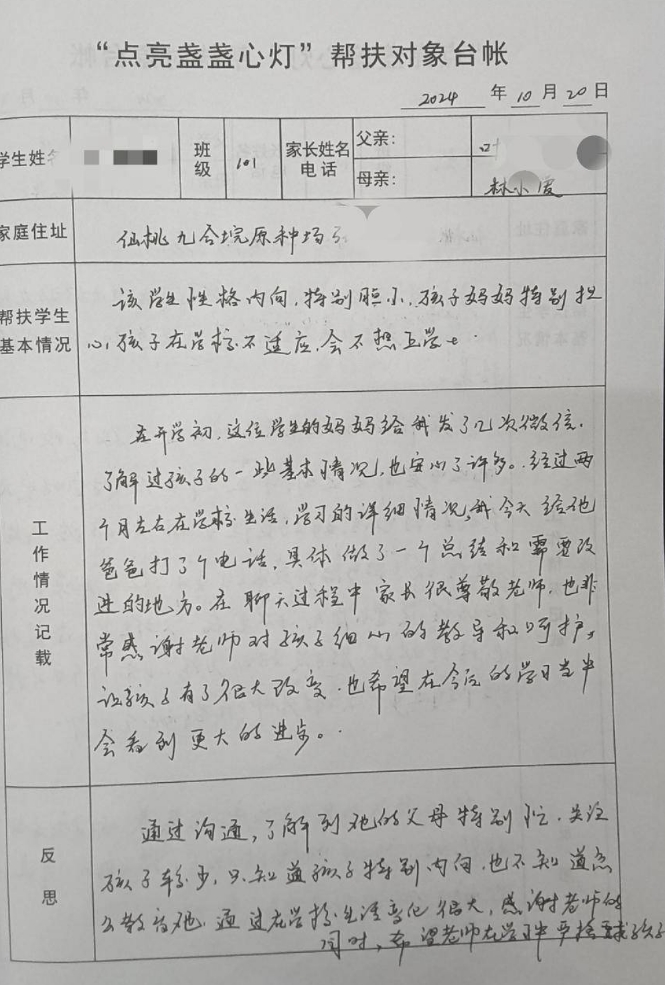 “点亮盏盏心灯”帮扶对象台帐
2024 年 10 月 20 日
学生姓名 班级 101 家长姓名电话 父亲: 叶
母亲: 林小霞
家庭住址 仙桃九合垸原种场
帮扶学生基本情况
该学生性格内向,特别胆小,孩子妈妈特别担
心,孩子在学校不适应,会不想上学。
工作情况记载
在开学初,这位学生的妈妈给我发了几次微信.
了解过孩子的一些基本情况,也安心了许多。经过两
个月左右在学校生活,学习的详细情况,我今天给他
爸爸打了个电话,具体做了一个总结和需要改
进的地方。在聊天过程中家长很尊敬老师,也非
常感谢老师对孩子细心的教导和呵护,
让孩子有了很大改变.也希望在今后的学习当中
会看到更大的进步。
反思
通过沟通,了解到她的父母特别忙.关注
孩子较少,只知道孩子特别内向,也不知道怎
么教育她.通过在学校生活变化很大,感谢老师的
同时,希望老师在学习中严格要求孩子